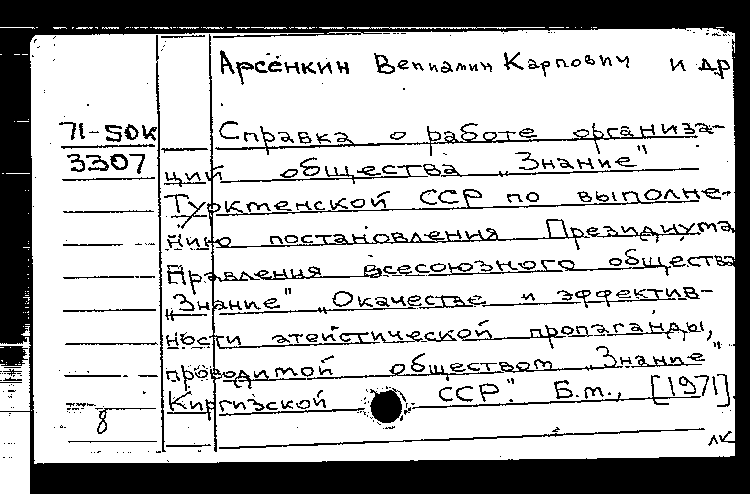 Арсёнкин Вениамин Карпович и др
71-50к
3307
Справка о работе организа-
ций общества „Знание"
Туркменской ССР по выполне-
нию постановления Президиума
Правления всесоюзного общества
„Знание" „Окачестве и эффектив-
ности атеистической пропаганды,
проводимой обществом „Знание"
Киргизской ССР". Б.м., [1971]
8
лк